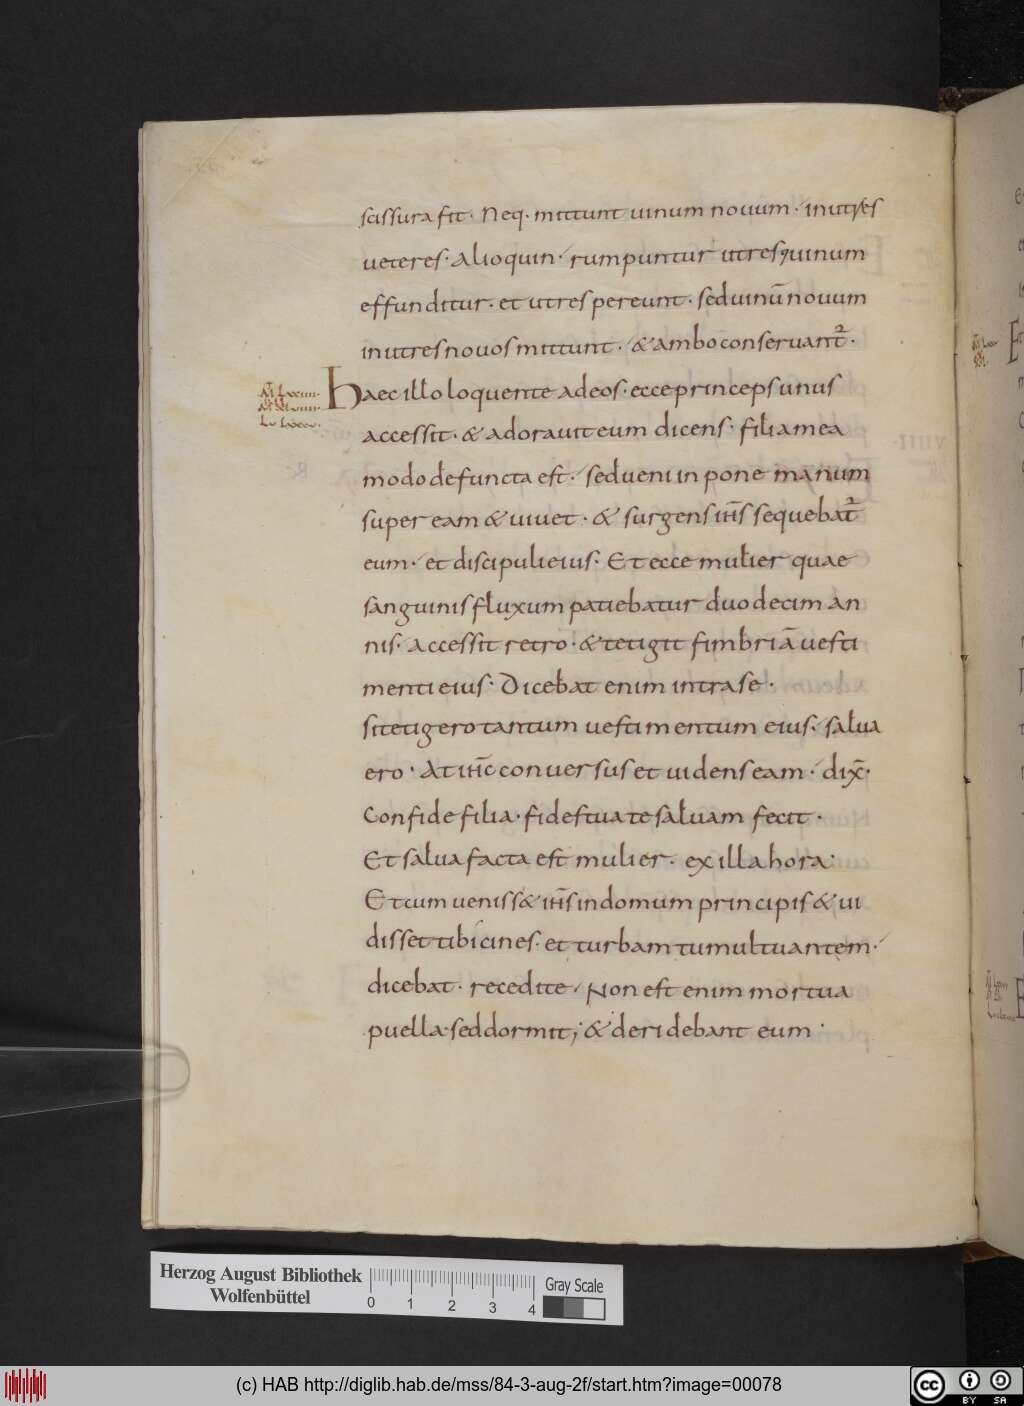 scissura fit. Neq. mittunt uinum nouum. in utres
ueteres. Alioquin. rumpuntur utres, & uinum
effunditur. et utres pereunt. sed uinū nouum
in utres nouos mittunt. & ambo conseruant᷑.
Haec illo loquente ad eos. ecce princeps unus
accessit. & adorauit eum dicens. filia mea
modo defuncta est. sed ueni inpone manum
super eam & uiuet. & surgens ih̄s sequebat᷑
eum. et discipuli eius. Et ecce mulier quae
sanguinis fluxum patiebatur duodecim an
nis. accessit retro. & tetigit fimbriā uesti
menti eius. Dicebat enim intra se.
si tetigero tantum uestimentum eius. salua
ero. At ih̄c conuersus et uidens eam. dix̄.
Confide filia. fides tua te saluam fecit.
Et salua facta est mulier. ex illa hora.
Et cum ueniss& ih̄s in domum principis & ui
disset tibicines. et turbam tumultuantem.
dicebat. recedite. Non est enim mortua
puella. sed dormit; & deridebant eum.
Herzog August Bibliothek
Wolfenbüttel
0 1 2 3 4
Gray Scale
(c) HAB http://diglib.hab.de/mss/84-3-aug-2f/start.htm?image=00078
cc BY SA